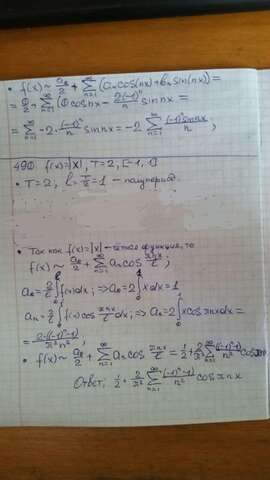 • f(x) ~ a₀/2 + ∑_{n=1}^{∞} (aₙ cos(nx) + bₙ sin(nx)) =
= 0/2 + ∑_{n=1}^{∞} (0 cos nx − 2(-1)ⁿ/n sin nx =
= ∑_{n=1}^{∞} -2·(-1)ⁿ/n sin nx = -2 ∑_{n=1}^{∞} (-1)ⁿ sin nx/n ;
490. f(x)=|x|, T=2, [-1, 1]
• T=2, l=T/2=1 – полупериод.
• Так как f(x)=|x| – четная функция, то
f(x) ~ a₀/2 + ∑_{n=1}^{∞} aₙ cos πnx/l ;
a₀ = 2/l ∫₀^l f(x)dx; => a₀ = 2∫₀¹ x dx = 1
aₙ = 2/l ∫₀^l f(x) cos πnx/l dx; => aₙ = 2∫₀¹ x cos πnx dx =
= 2·((-1)ⁿ-1)/π²n² ;
• f(x) ~ a₀/2 + ∑_{n=1}^{∞} aₙ cos πnx/l = 1/2 + 2/π² ∑_{n=1}^{∞} ((-1)ⁿ-1)/n² cos πnx
Ответ: 1/2 + 2/π² ∑_{n=1}^{∞} (-1)ⁿ-1/n² cos πnx